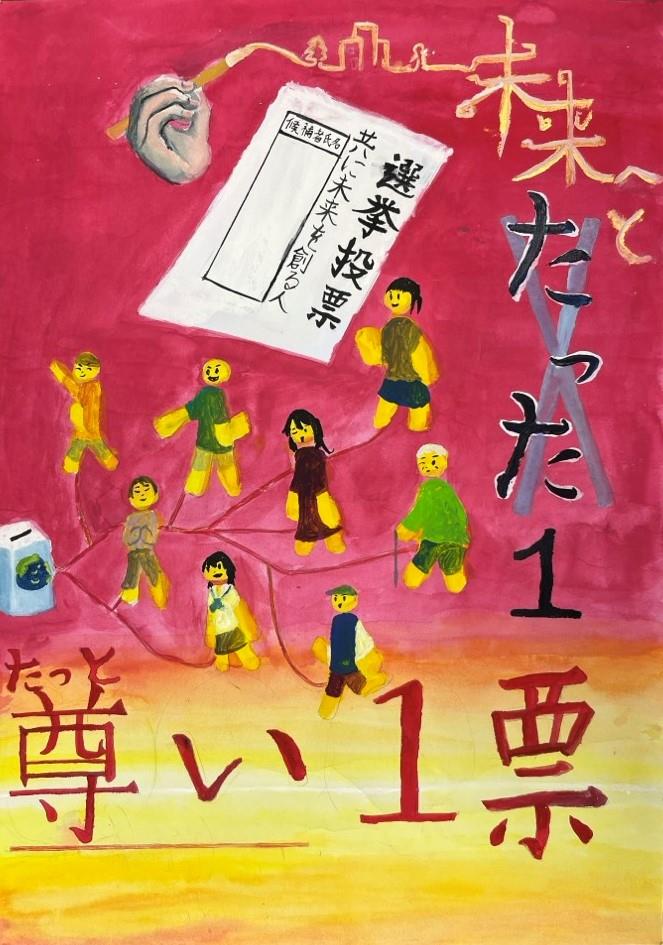 未来へと
選挙投票
共に未来を創る人
候補者氏名
たった1
たっと
尊い1票